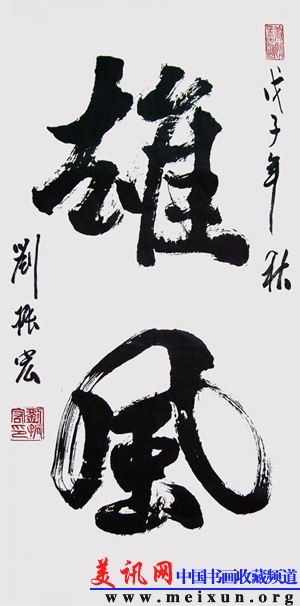 戊子年秋
雄風
劉振宏
美讯网 中国书画收藏频道
www.meixun.org